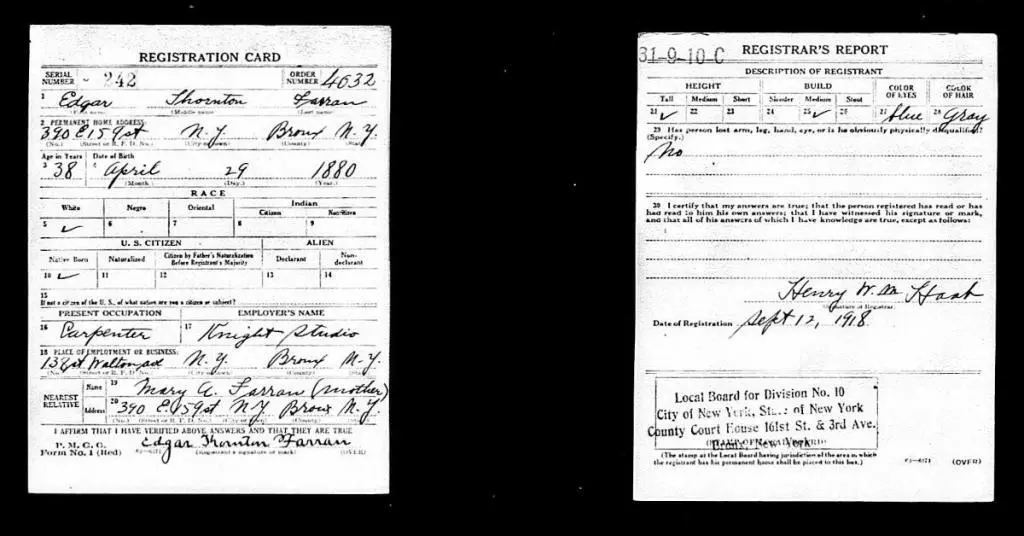 REGISTRATION CARD
SERIAL NUMBER 242 ORDER NUMBER 4632
1 Edgar Thornton Farran
(First name) (Middle name) (Last name)
2 PERMANENT HOME ADDRESS:
390 E 159st N.Y. Bronx N.Y.
(No.) (Street or R. F. D. No.) (City or town) (County) (State)
Age in Years Date of Birth
3 38 4 April 29 1880
(Month.) (Day.) (Year.)
RACE
White Negro Oriental Indian
Citizen Noncitizen
5 ✓ 6 7 8 9
U. S. CITIZEN ALIEN
Native Born Naturalized Citizen by Father's Naturalization Before Registrant's Majority Declarant Non-declarant
10 ✓ 11 12 13 14
15
If not a citizen of the U. S., of what nation are you a citizen or subject?
PRESENT OCCUPATION EMPLOYER'S NAME
16 Carpenter 17 Knight Studio
18 PLACE OF EMPLOYMENT OR BUSINESS:
Walton N.Y. Bronx N.Y.
(No.) (Street or R. F. D. No.) (County) (State)
NEAREST RELATIVE Name 19 Mary A. Farran (mother)
Address 20 390 E. 159st NY Bronx N.Y.
(No.) (Street or R. F. D. No.) (City or town) (County) (State)
I AFFIRM THAT I HAVE VERIFIED ABOVE ANSWERS AND THAT THEY ARE TRUE
P. M. G. O. Edgar Thornton Farran
Form No. 1 (Red) (Registrant's signature or mark) (OVER)
31-9-10-C REGISTRAR'S REPORT
DESCRIPTION OF REGISTRANT
HEIGHT BUILD COLOR OF EYES COLOR OF HAIR
Tall Medium Short Slender Medium Stout
21 ✓ 22 23 24 25 ✓ 26 27 blue 28 Gray
29 Has person lost arm, leg, hand, eye, or is he obviously physically disqualified?
(Specify.)
No
30 I certify that my answers are true; that the person registered has read or has
had read to him his own answers; that I have witnessed his signature or mark,
and that all of his answers of which I have knowledge are true, except as follows:
Henry W. M.
(Signature of Registrar)
Date of Registration Sept 12, 1918
Local Board for Division No. 10
City of New York, State of New York
County Court House 161st St. & 3rd Ave.
Bronx, New York
(STAMP OF LOCAL BOARD)
(The stamp of the Local Board having jurisdiction of the area in which
the registrant has his permanent home shall be placed in this box.)
(OVER)